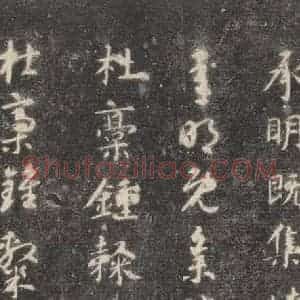 承明既集
承明既集
杜稾鍾隸
杜稾鍾隸
Shufaziliao.COM